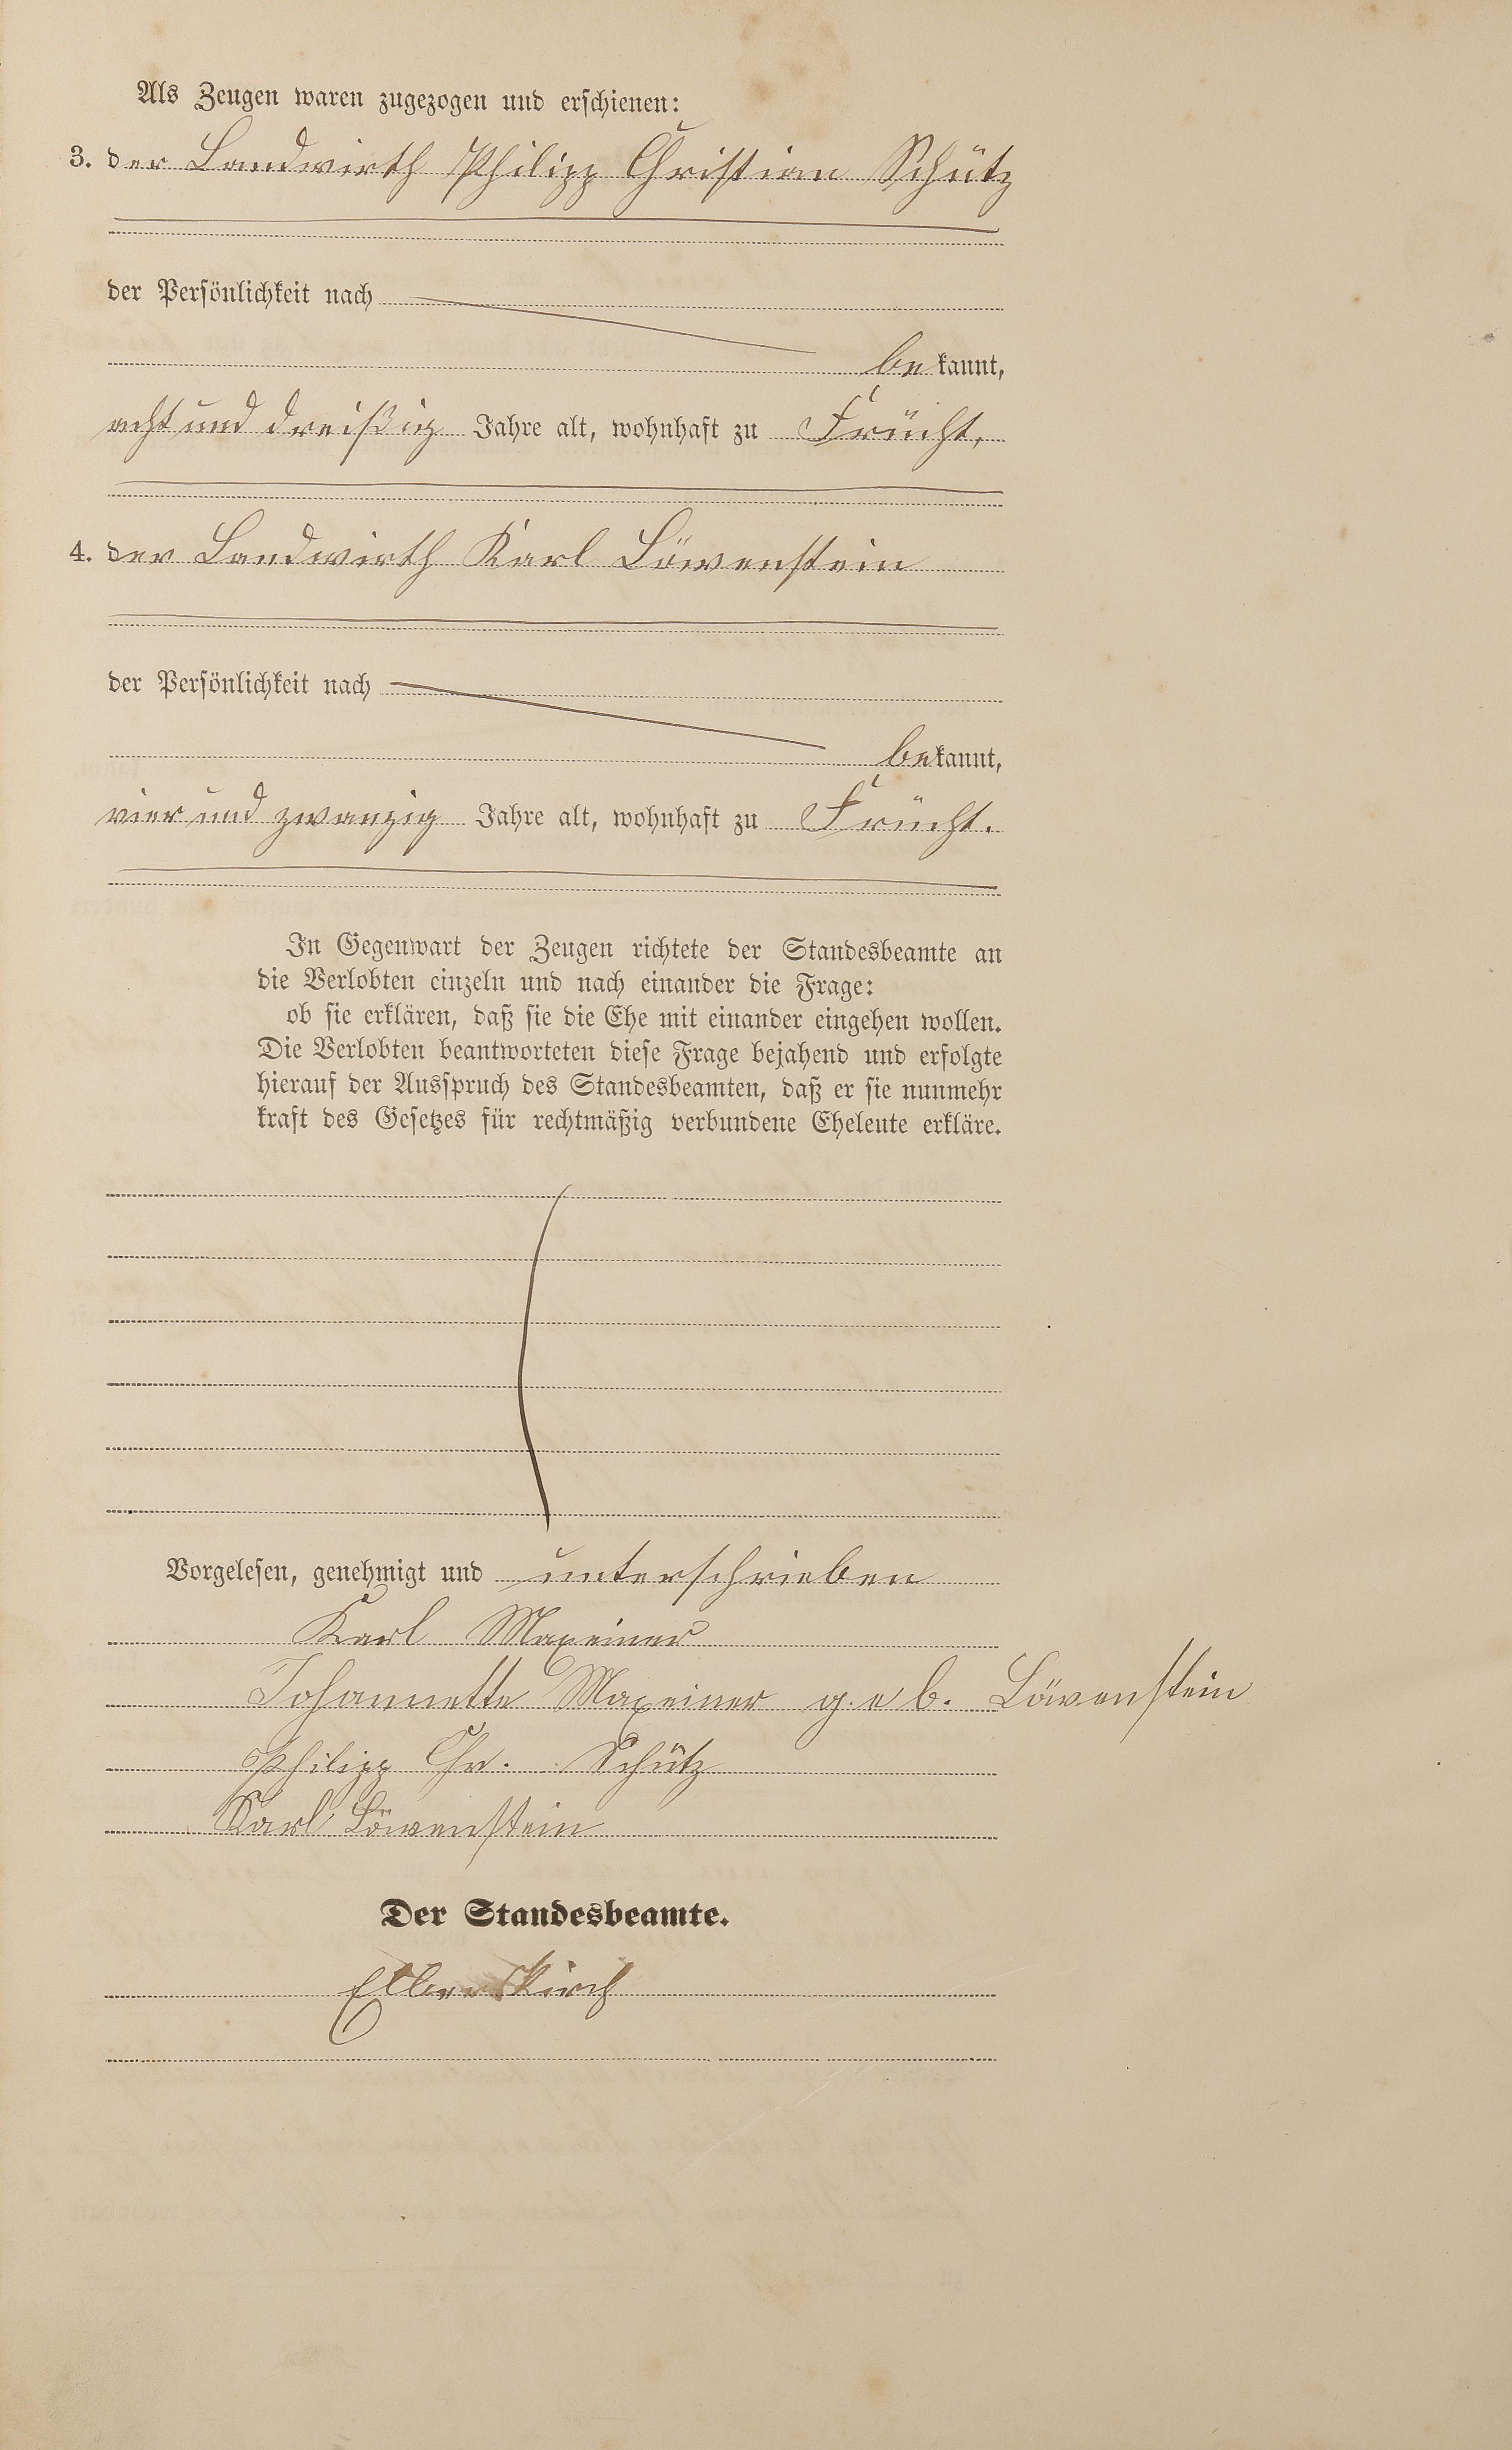 Als Zeugen waren zugezogen und erschienen:
3. der Landwirth Philipp Christian Schütz
der Persönlichkeit nach
bekannt,
acht und dreißig Jahre alt, wohnhaft zu Frücht,
4. der Landwirth Karl Löwenstein
der Persönlichkeit nach
bekannt,
vier und zwanzig Jahre alt, wohnhaft zu Frücht.
In Gegenwart der Zeugen richtete der Standesbeamte an
die Verlobten einzeln und nach einander die Frage:
ob sie erklären, daß sie die Ehe mit einander eingehen wollen.
Die Verlobten beantworteten diese Frage bejahend und erfolgte
hierauf der Ausspruch des Standesbeamten, daß er sie nunmehr
kraft des Gesetzes für rechtmäßig verbundene Eheleute erkläre.
Vorgelesen, genehmigt und unterschrieben
Karl Maxeiner
Johannette Maxeiner geb. Löwenstein
Philipp Chr. Schütz
Karl Löwenstein
Der Standesbeamte.